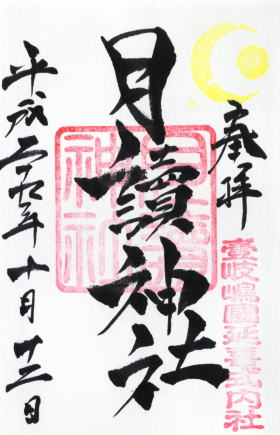 奉拝
壹岐嶋國延喜式内社
月讀神社
月讀神社
平成 年十月 日